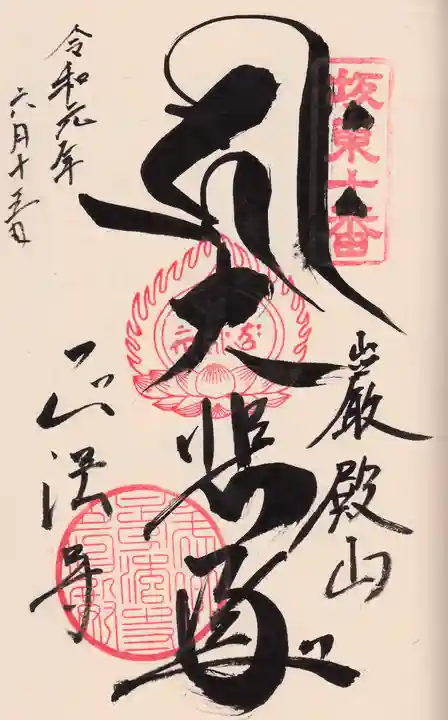 坂東十番
巌殿山
大悲殿
正法寺
令和元年
六月十五日